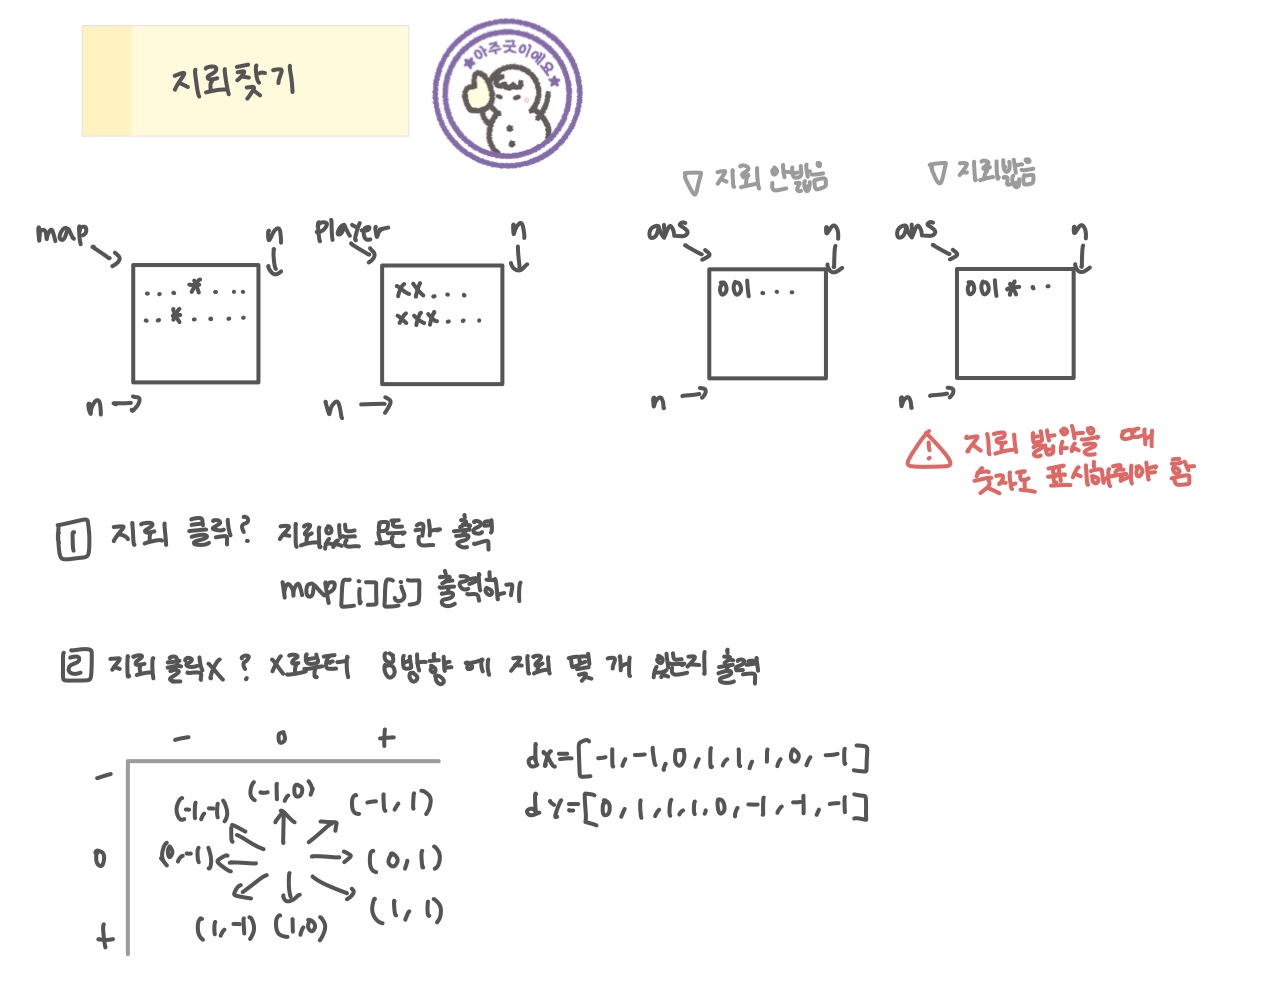 지뢰찾기
★아주굿이에요★
▽ 지뢰 안밟음
▽ 지뢰밟음
map
n
player
n
ans
n
ans
n
...*...
..*....
xx...
xxx...
001...
001*..
n →
n →
n →
n →
⚠ 지뢰 밟았을 때
숫자도 표시해줘야 함
1 지뢰 클릭? 지뢰있는 모든 칸 출력
map[i][j] 출력하기
2 지뢰 클릭x ? x로부터 8방향에 지뢰 몇 개 있는지 출력
- 0 +
-
(-1,-1) (-1,0) (-1,1)
0 (0,-1) (0,1)
+ (1,-1) (1,0) (1,1)
dx=[-1,-1,0,1,1,1,0,-1]
dy=[0,1,1,1,0,-1,-1,-1]